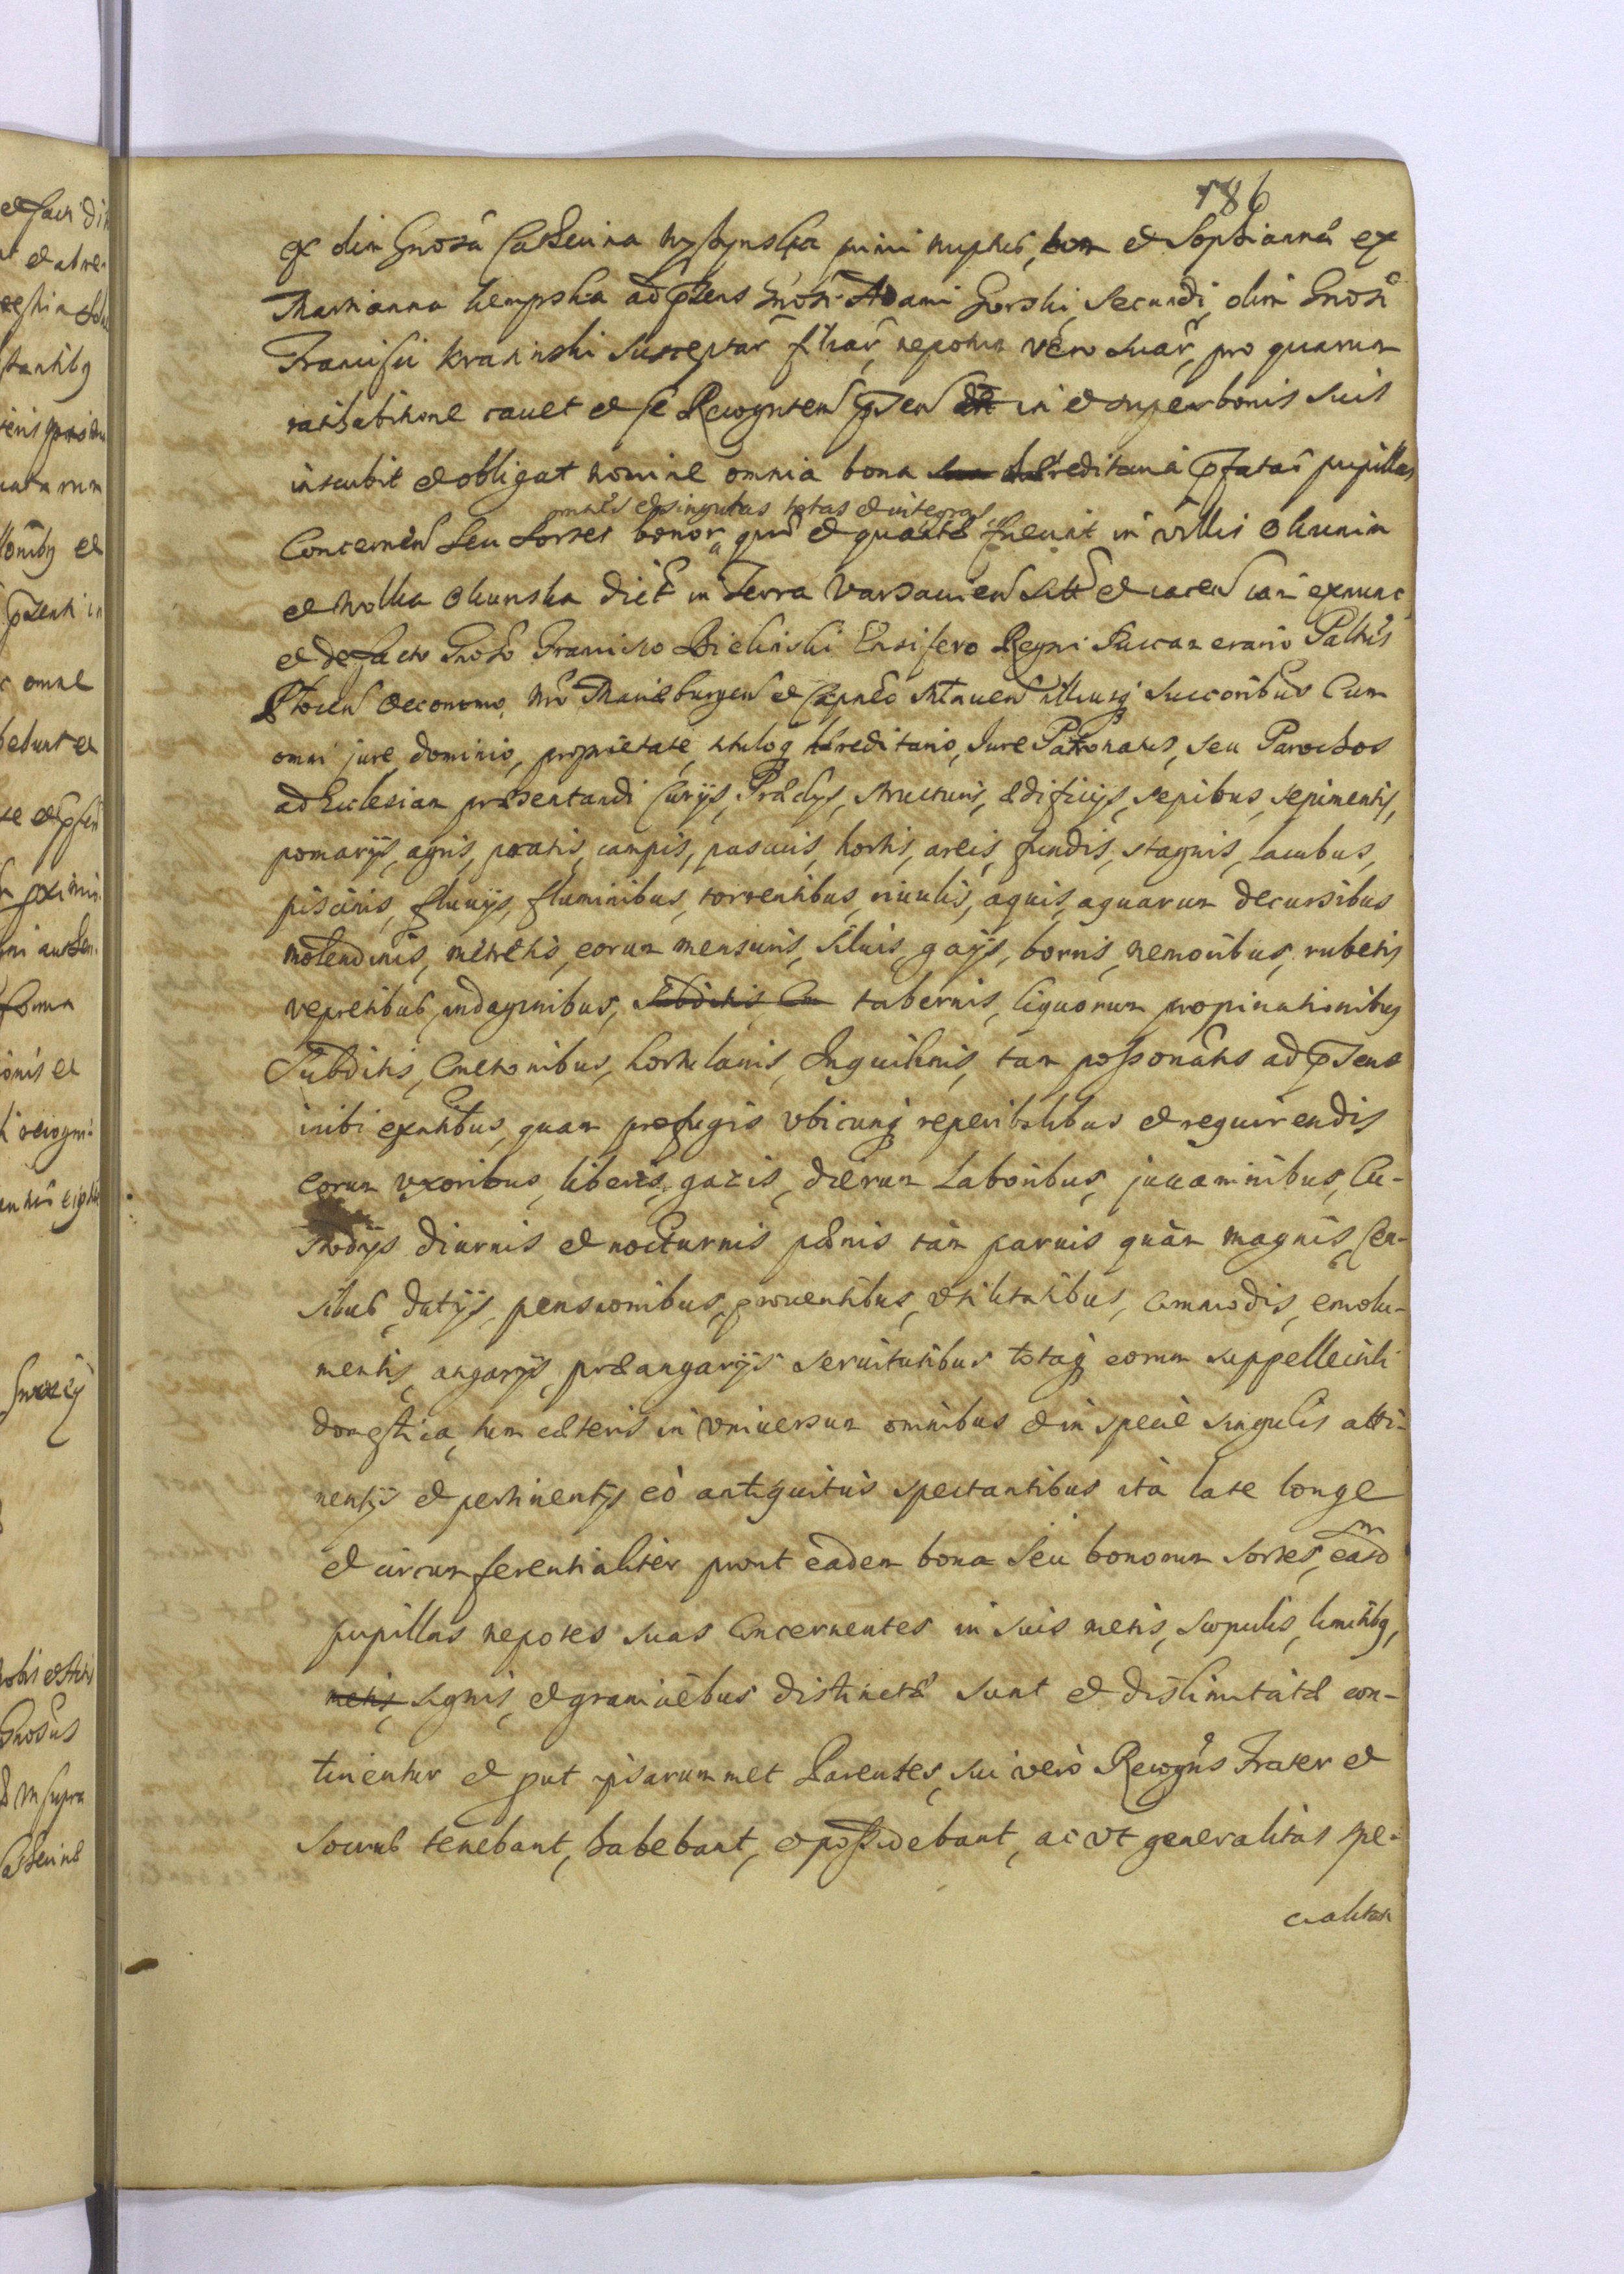 186
ex olim Gnosa Catherina Wyszynska primi nuptus, et Sophianna ex
Marianna Kempska ad pñs Gnosi Adami Gorski, Secundi, olim Gnosi
Francisci Krasinski susceptar filiar, nepotum vero suar, pro quarum
ratihabitione cauet et se Recognscen in et super bonis suis
inscribit et obligat nomine omnia bona hæreditaria pfatas pupillas
omnes et singulas totas et integras
Concernen Seu Sortes bonor quæ et quantæ fuerint in villis Okunin
et Wolka Okunska dict in Terra Varsavien sitt et iacen iam exnunc
et de facto Gnoso Francisco Bielinski Ensifero Regni Succamerario Palttus
Œconomo Mariæburgen et Capneo illiusq Succoribus Cum
omni jure, dominio, proprietate, tituloq hæreditario, Jure Patronatus, seu Parochos
ad Eclesiam præsentandi Curijs, Prædijs, structuris, ædificijs, sepibus, sepimentis,
pomarijs, agris, pratis, campis, pascuis, hortis, areis, fundis, stagnis, lacubus,
piscinis, fluuijs, fluminibus, torrentibus, riuulis, aquis, aquarum decursibus
molendinis, metretis, eorum mensuris, siluis, gajis, borris, nemoribus, rubetis
vepretibus, indaginibus, Subditis Cm tabernis, liquorum propinationibus
Subditis, Cmetonibus, hortulanis, Inquilinis, tam possonatis ad psens
inibi exntibus, quam profugis vbicunq reperibilibus et requirendis
eorum vxoribus, liberis, gazis, dierum Laboribus, juuaminibus, Cu-
stodijs diurnis et nocturnis pænis tàm paruis quàm magnis, Cen-
sibus, datijs, pensionibus, prouentibus, vtilitatibus, Commodis, emolu-
mentis, angarijs, præangarijs seruitutibus totaq eorum suppellectili
domestica, tum cæteris in vniversum omnibus et in specie singulis atti-
nentijs et pertinentijs eò antiquitùs spectantibus ità late longe
et circumferentialiter prout eadem bona Seu bonorum Sortes, easd
pupillas nepotes suas Concernentes in suis metis, scopulis, limitibq,
metis, signis, et graniciebus distinctæ sunt et dislimitatæ con-
tinentur et put ipsarummet Parentes, sui verò Recogntis Frater et
Socrus tenebant, habebant, et possidebant, ac vt generalitas spe-
cialitati